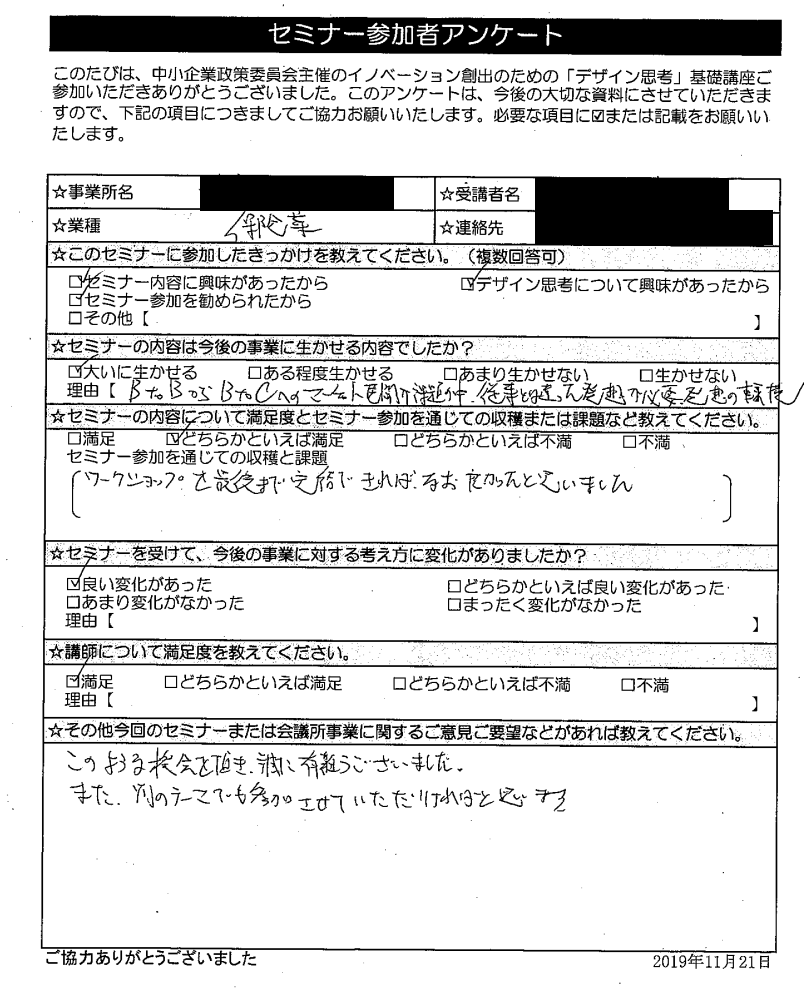 セミナー参加者アンケート
このたびは、中小企業政策委員会主催のイノベーション創出のための「デザイン思考」基礎講座ご
参加いただきありがとうございました。このアンケートは、今後の大切な資料にさせていただきま
すので、下記の項目につきましてご協力お願いいたします。必要な項目に☑または記載をお願いい
たします。
☆事業所名 ☆受講者名
☆業種 ☆連絡先
☆このセミナーに参加したきっかけを教えてください。（複数回答可）
☑セミナー内容に興味があったから ☑デザイン思考について興味があったから
□セミナー参加を勧められたから
□その他【 】
☆セミナーの内容は今後の事業に生かせる内容でしたか？
☑大いに生かせる □ある程度生かせる □あまり生かせない □生かせない
理由【 BtoBからBtoCへのマーケット展開が 中、従事とは違った発想が必要 発想の転換
☆セミナーの内容について満足度とセミナー参加を通じての収穫または課題など教えてください。
□満足 ☑どちらかといえば満足 □どちらかといえば不満 □不満
セミナー参加を通じての収穫と課題
ワークショップを最後まで完備できれば、なお良かったと思いました
☆セミナーを受けて、今後の事業に対する考え方に変化がありましたか？
☑良い変化があった □どちらかといえば良い変化があった
□あまり変化がなかった □まったく変化がなかった
理由【 】
☆講師について満足度を教えてください。
☑満足 □どちらかといえば満足 □どちらかといえば不満 □不満
理由【 】
☆その他今回のセミナーまたは会議所事業に関するご意見ご要望などがあれば教えてください。
このような機会を頂き、誠に有難うございました。
また、別のテーマでも参加させていただければと思います
ご協力ありがとうございました
2019年11月21日